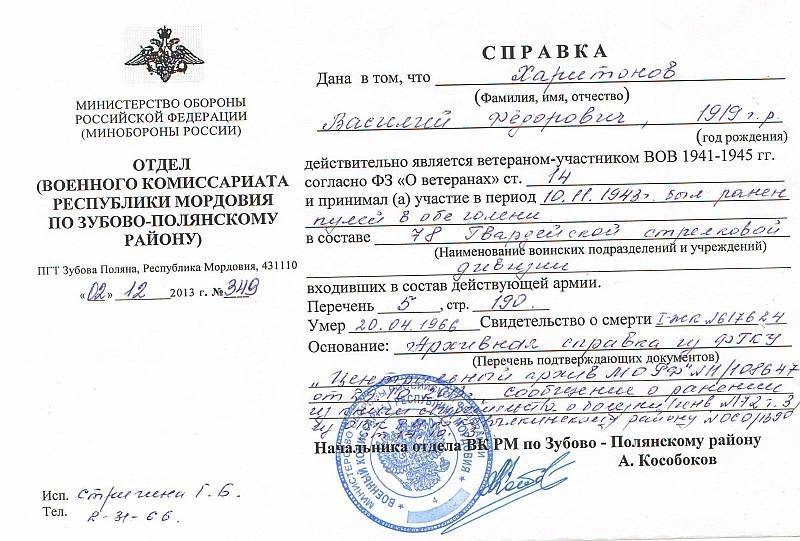 МИНИСТЕРСТВО ОБОРОНЫ
РОССИЙСКОЙ ФЕДЕРАЦИИ
(МИНОБОРОНЫ РОССИИ)
ОТДЕЛ
(ВОЕННОГО КОМИССАРИАТА
РЕСПУБЛИКИ МОРДОВИЯ
ПО ЗУБОВО-ПОЛЯНСКОМУ
РАЙОНУ)
ПГТ Зубова Поляна, Республика Мордовия, 431110
«02» 12 2013 г. № 349
СПРАВКА
Дана в том, что Харитонов
(Фамилия, имя, отчество)
Василий Фёдорович, 1919 г.р.
(год рождения)
действительно является ветераном-участником ВОВ 1941-1945 гг.
согласно ФЗ «О ветеранах» ст. 14
и принимал (а) участие в период 10.11.1943г. был ранен
пулей в обе голени
в составе 78 Гвардейской стрелковой
(Наименование воинских подразделений и учреждений)
дивизии
входивших в состав действующей армии.
Перечень 5, стр. 190.
Умер 20.04.1966 Свидетельство о смерти I-ЖК №617624
Основание: Архивная справка из ФГКУ
(Перечень подтверждающих документов)
"Центральный архив МО РФ" №11/108647
от сообщение о ранении
из книги о
району
Начальника отдела ВК РМ по Зубово - Полянскому району
А. Кособоков
ВОЕННЫЙ
4
Исп. Г. Б.
Тел. 2-31-66.